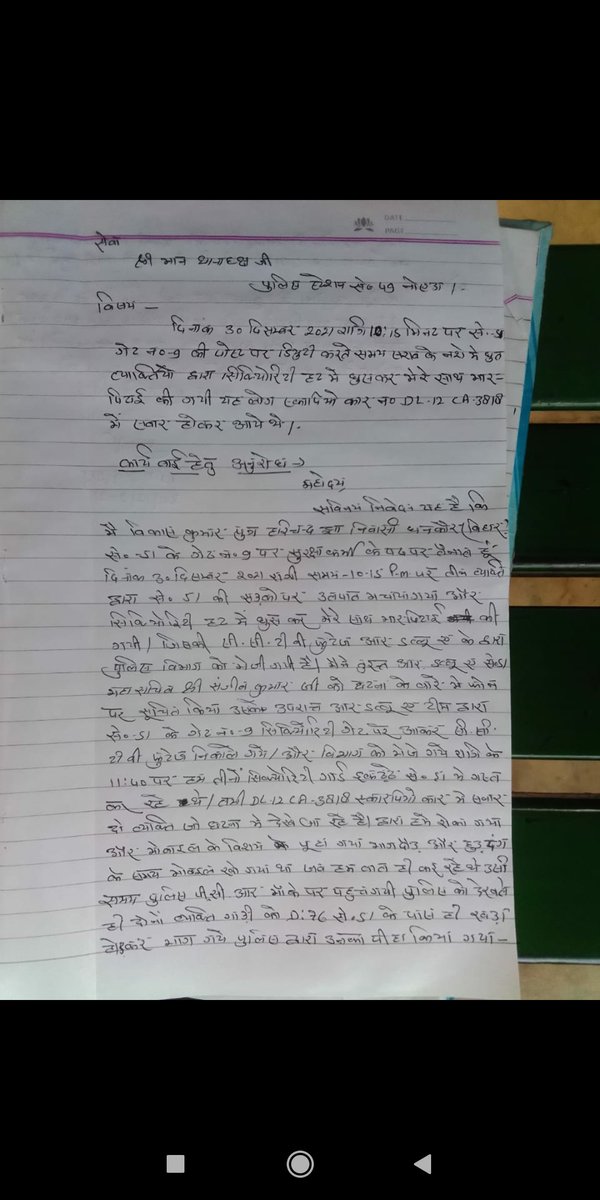 DATE
PAGE
सेवा
श्री मान थानाध्यक्ष जी
पुलिस स्टेशन से० 49 नोएडा ।
विषय —
दिनांक 30 दिसम्बर 2021 रात्रि 10:15 मिनट पर से०
गेट न०-9 की पोस्ट पर डियुटी करते समय शराब के नशे मे धुत
व्यक्तियों द्वारा सिक्योरिटी हट मे घुसकर मेरे साथ मार-
पिटाई की गयी यह लोग स्कार्पियो कार न० DL-12 CA-3818
में सवार होकर आये थे ।
कार्य वाई हेतु अनुरोध →
महोदय,
सविनय निवेदन यह है कि
मै विकास कुमार पुत्र हरिचन्द्र निवासी
से०-51 के गेट न०-9 पर सुरक्षा कर्मी के पद पर तैनात हूं
दिनांक 30 दिसम्बर 2021 रात्री समय-10-15 P.m पर तीन व्यक्ति
द्वारा से० 51 की सड़को पर उत्पात मचाया गया और
सिक्योरिटी हट में घुस कर मेरे साथ मारपिटाई की
गयी / जिसकी सी.सी.टी वी फुटेज आर डब्लू ए के द्वारा
पुलिस विभाग को भेजी गयी है। मैने तुरन्त आर डब्लू ए से०51
महा सचिव श्री संजीव कुमार जी को घटना के बारे मे फोन
पर सूचित किया उसके उपरान्त आर डब्लू ए टीम द्वारा
से०-51 के गेट न०-9 सिक्योरिटी गेट पर आकर सी.सी.
टी वी फुटेज निकाले गये / और विभाग को भेजे गये रात्रि के
11:40 पर हम तीनों सिक्योरिटी गार्ड से० 51 मे गस्त
कर रहे थे / तभी DL-12 CA-3818 स्कारपियो कार मे सवार
दो व्यक्ति जो घटना मे देखे जा रहे है। द्वारा हमे रोका गया
और मोबाइल के विषय मे पूछा गया भागदौड़ और हुड़दंग
के समय मोबाइल खो गया था जब हम बात ही कर रहे थे उसी
समय पुलिस पी.सी आर मौके पर पहुच गयी पुलिस को देखते
ही दोनों व्यक्ति गाड़ी को D-76 से० 51 के पास ही खड़ी
छोड़कर भाग गये पुलिस द्वारा उनका पीछा किया गया —